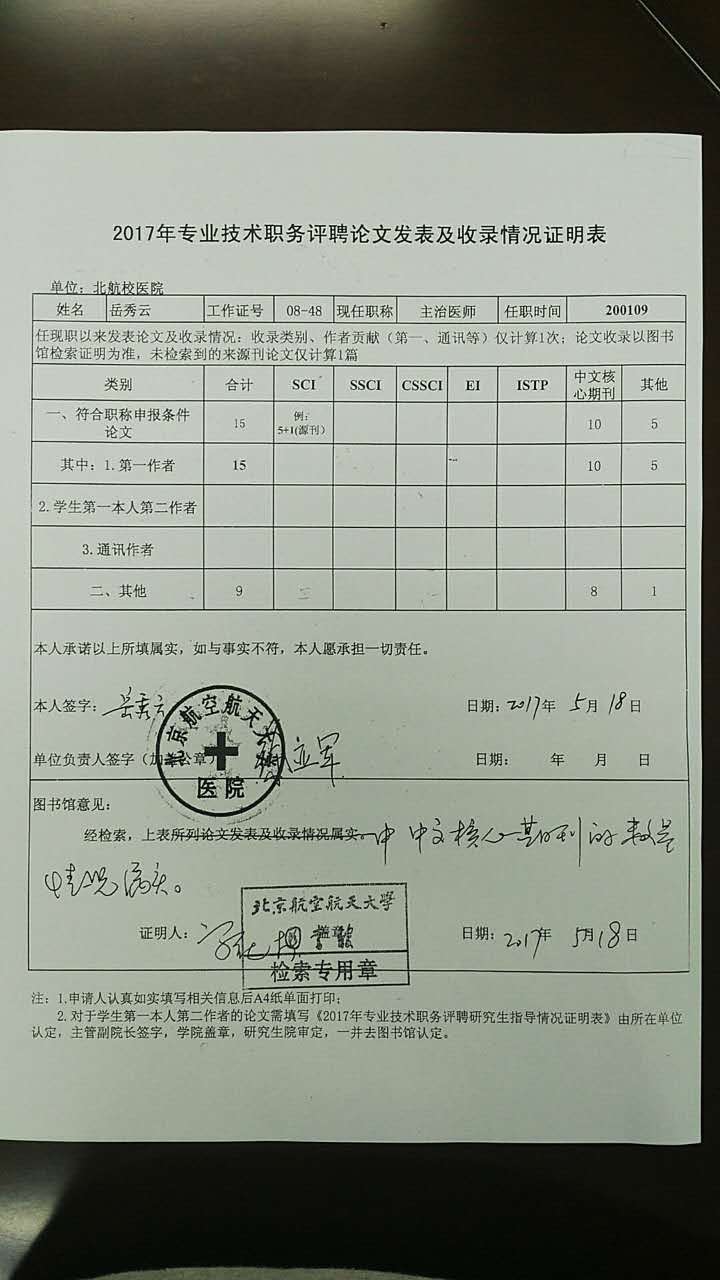 2017年专业技术职务评聘论文发表及收录情况证明表
单位：北航校医院
姓名 岳秀云 工作证号 08-48 现任职称 主治医师 任职时间 200109
任现职以来发表论文及收录情况：收录类别、作者贡献（第一、通讯等）仅计算1次；论文收录以图书
馆检索证明为准，未检索到的来源刊论文仅计算1篇
类别 合计 SCI SSCI CSSCI EI ISTP 中文核心期刊 其他
一、符合职称申报条件论文 15 例：5+1(源刊) 10 5
其中：1.第一作者 15 10 5
2.学生第一本人第二作者
3.通讯作者
二、其他 9 8 1
本人承诺以上所填属实，如与事实不符，本人愿承担一切责任。
本人签字：岳秀云 日期：2017年 5月18日
北京航空航天大学
医院
单位负责人签字（加盖公章） 日期： 年 月 日
图书馆意见：
经检索，上表所列论文发表及收录情况属实。中 中文核心期刊的数量
情况属实。
北京航空航天大学
图书馆
检索专用章
证明人： 日期：2017年 5月18日
注：1.申请人认真如实填写相关信息后A4纸单面打印；
2.对于学生第一本人第二作者的论文需填写《2017年专业技术职务评聘研究生指导情况证明表》由所在单位
认定，主管副院长签字，学院盖章，研究生院审定，一并去图书馆认定。